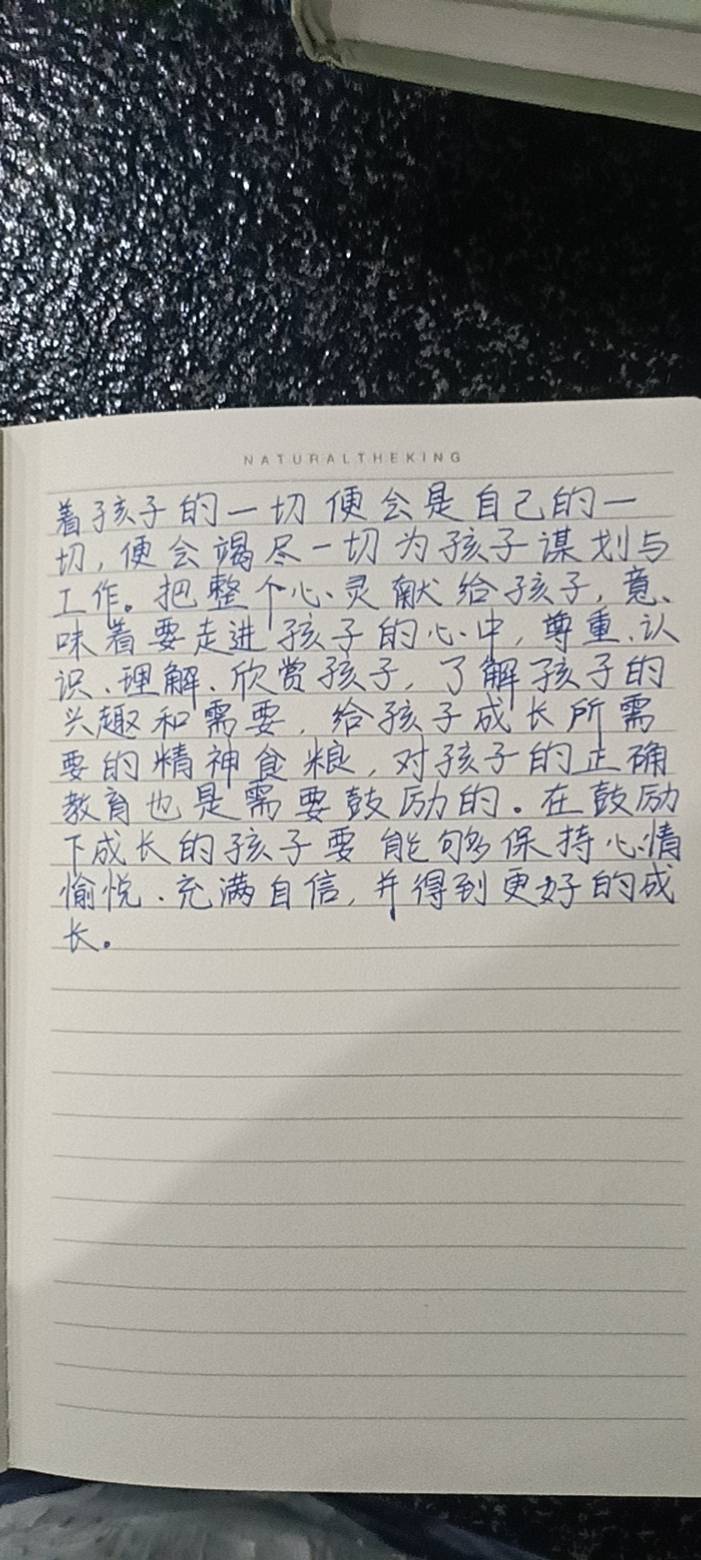 NATURALTHEKING
着孩子的一切便会是自己的一
切，便会竭尽一切为孩子谋划与
工作。把整个心灵献给孩子，意
味着要走进孩子的心中，尊重、认
识、理解、欣赏孩子，了解孩子的
兴趣和需要，给孩子成长所需
要的精神食粮，对孩子的正确
教育也是需要鼓励的。在鼓励
下成长的孩子要能够保持心情
愉悦、充满自信，并得到更好的成
长。